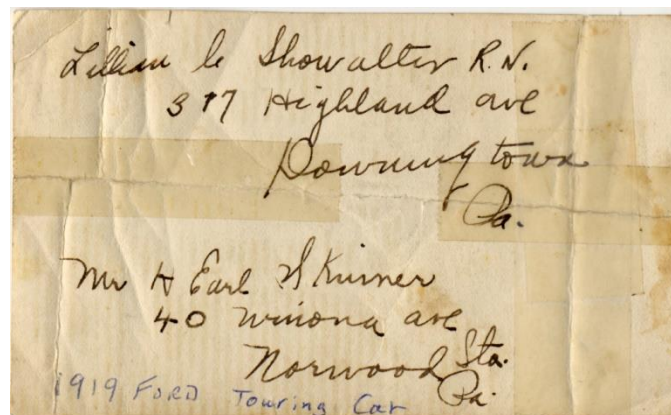 Lillian C Showalter R.N.
317 Highland ave
Downingtown
Pa.
Mr H Earl Skinner
40 Winona ave
Norwood Sta.
Pa.
1919 FORD Touring Car